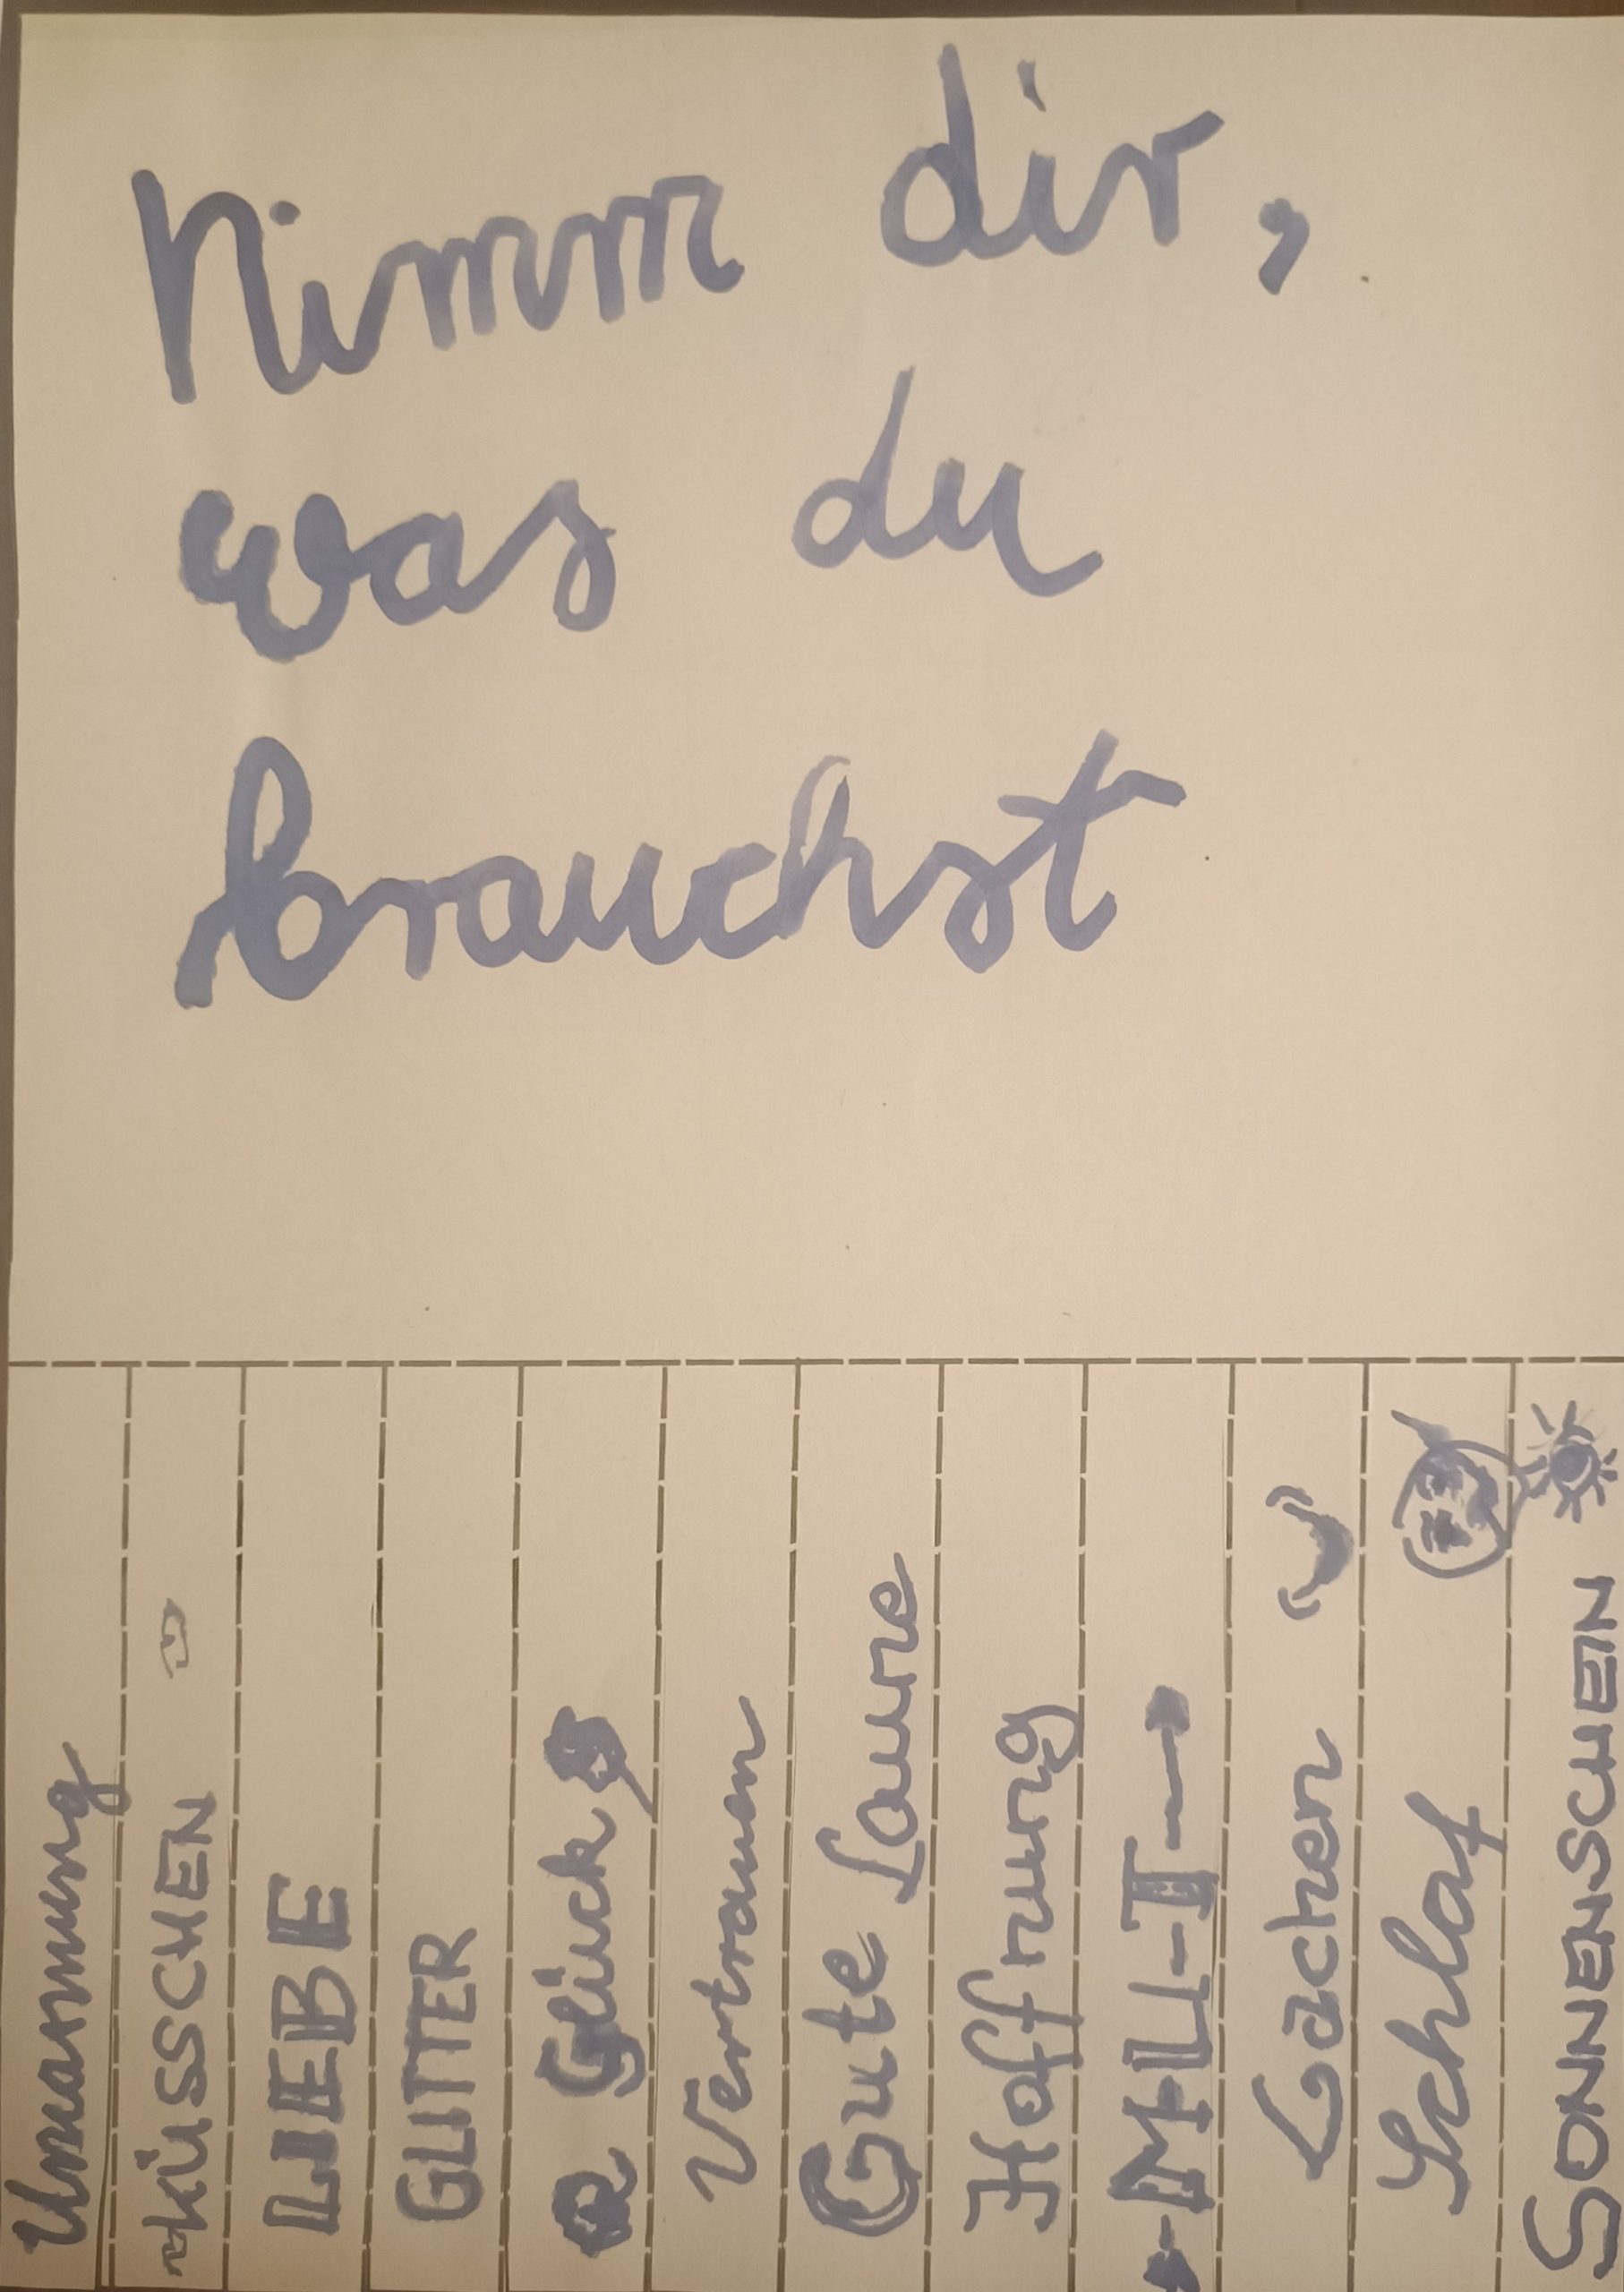 Nimm dir,
was du
brauchst
Umarmung
KÜSSCHEN
LIEBE
GLITTER
Glück
Vertrauen
Gute Laune
Hoffnung
Lachen
Schlaf
SONNENSCHEIN